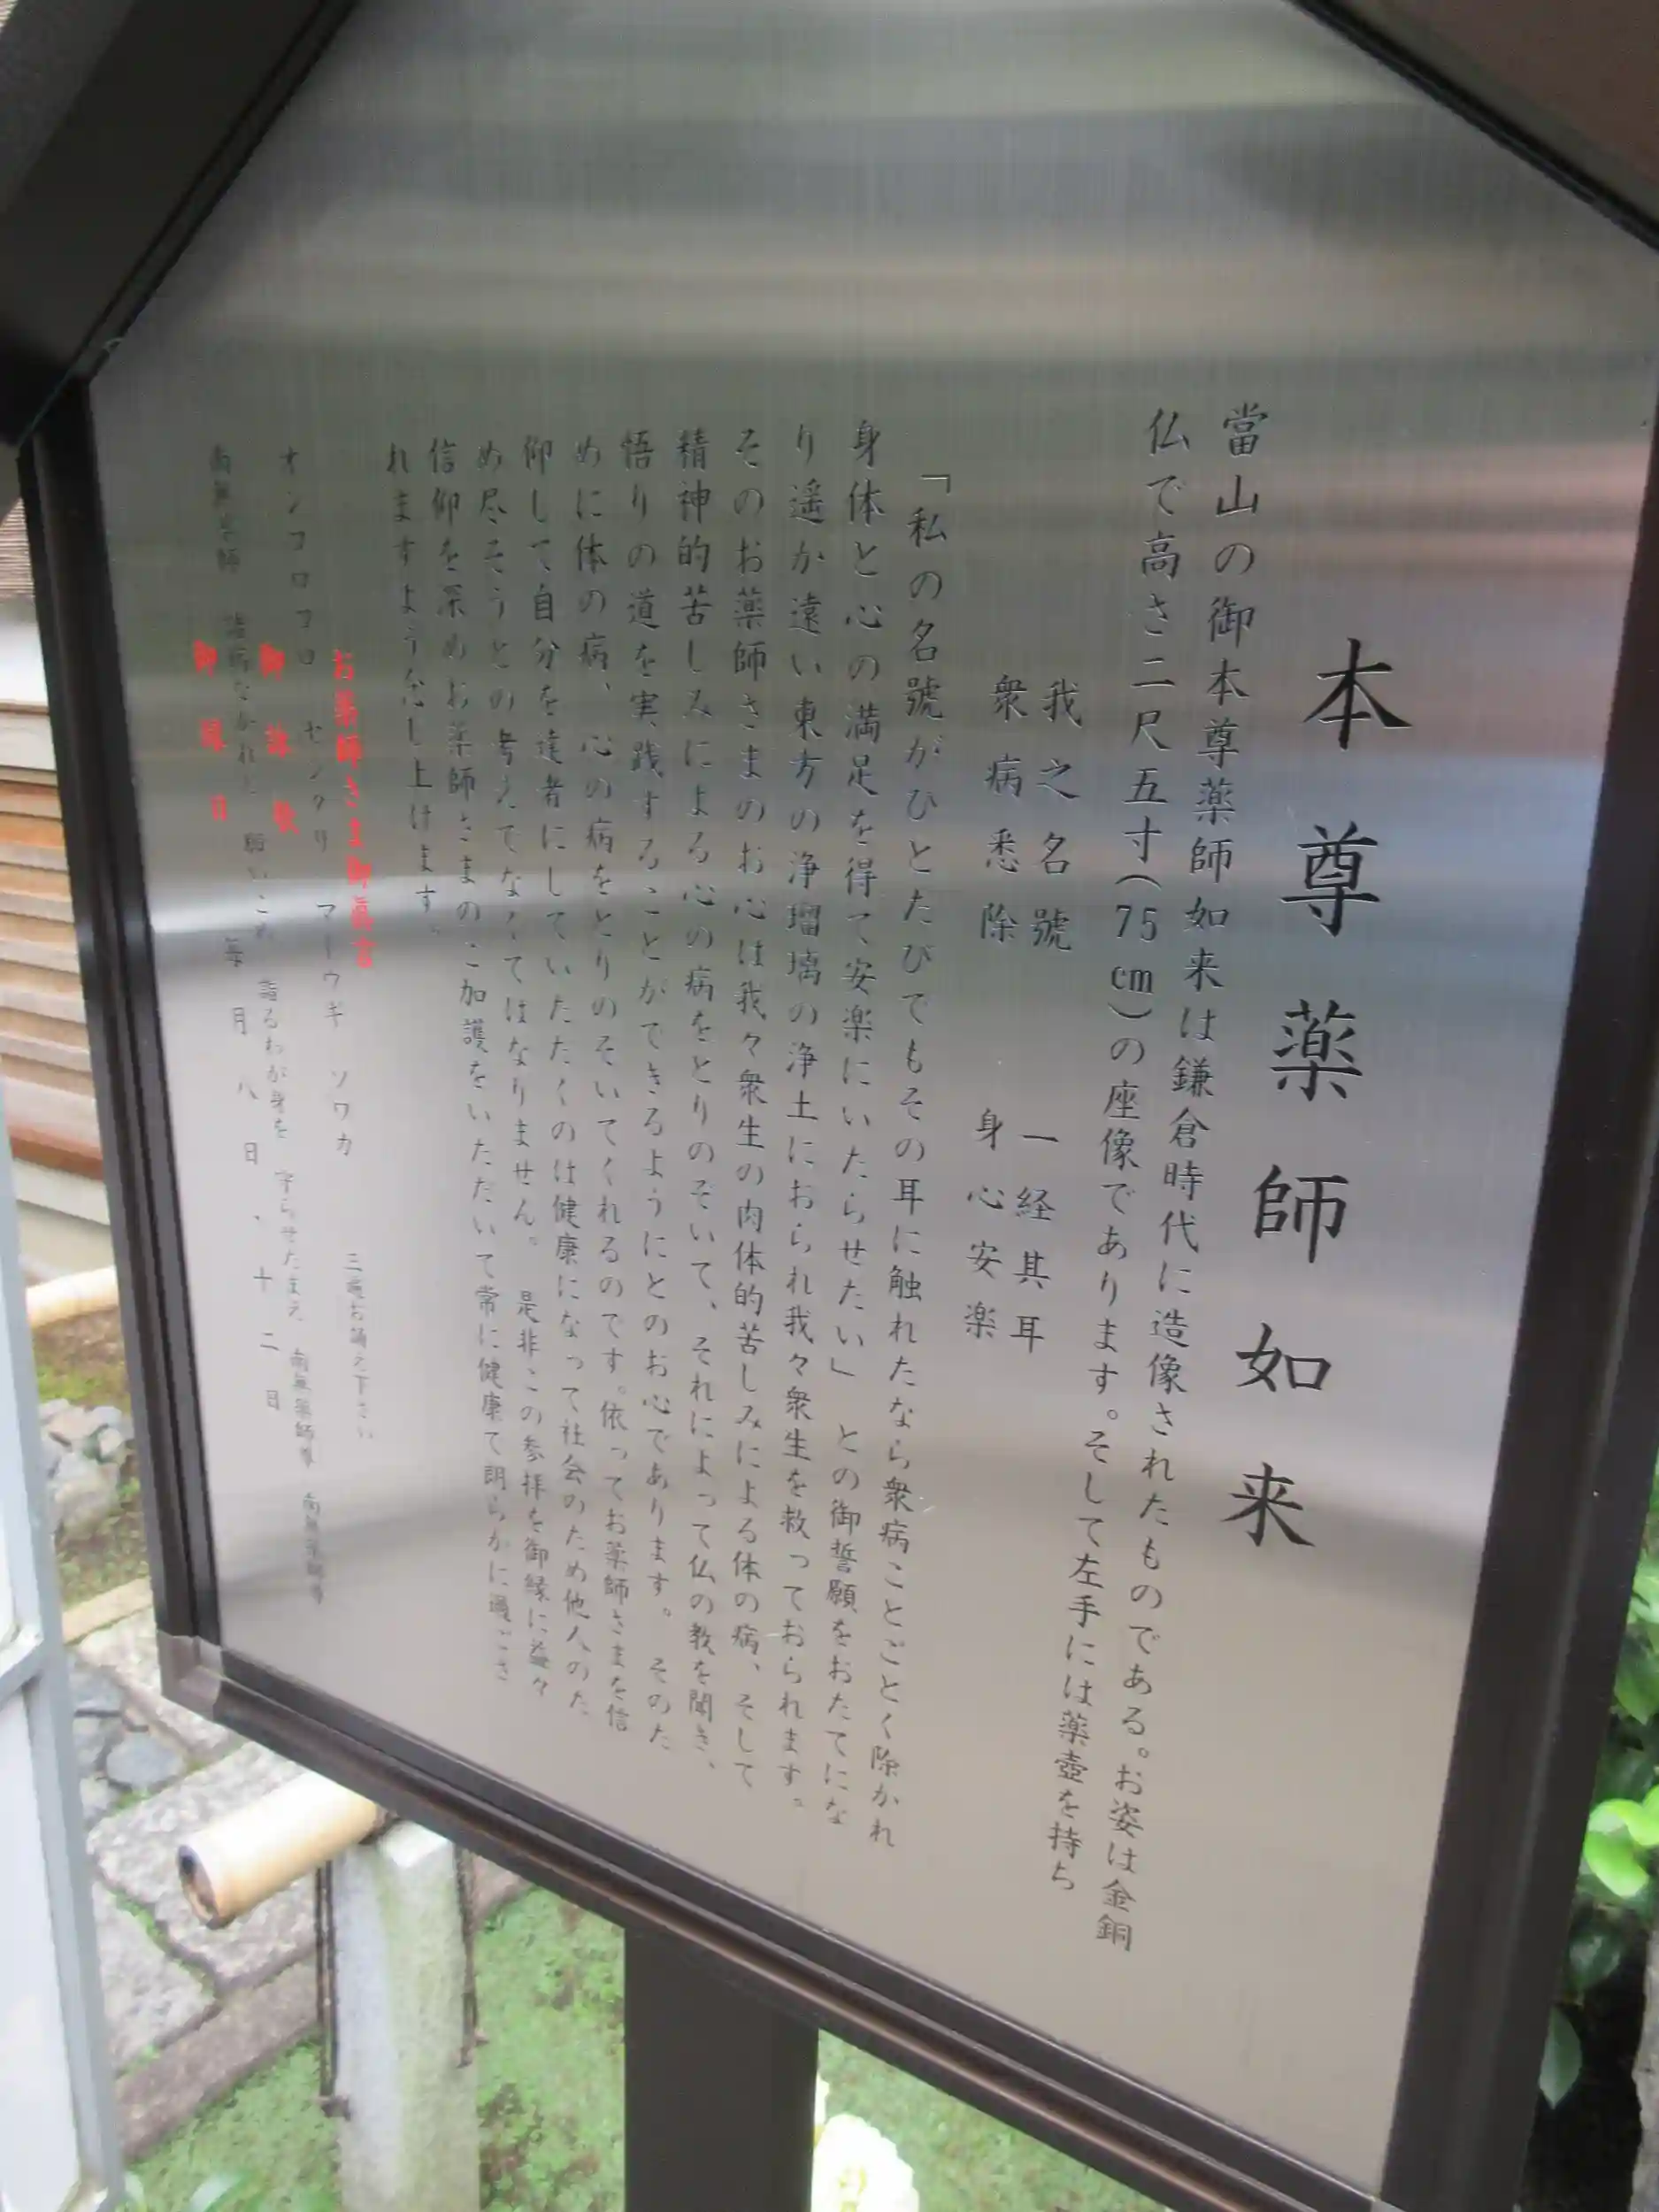 本尊薬師如来
當山の御本尊薬師如来は鎌倉時代に造像されたものである。お姿は金銅
仏で高さ二尺五寸(75cm)の座像であります。そして左手には薬壺を持ち
我之名號 一経其耳
衆病悉除 身心安楽
「私の名號がひとたびでもその耳に触れたなら衆病ことごとく除かれ
身体と心の満足を得て安楽にいたらせたい」 との御誓願をおたてにな
り遥か遠い東方の浄瑠璃の浄土におられ我々衆生を救っておられます。
そのお薬師さまのお心は我々衆生の肉体的苦しみによる体の病、そして
精神的苦しみによる心の病をとりのぞいて、それによって仏の教を聞き、
悟りの道を実践することができるようにとのお心であります。 そのた
めに体の病、心の病をとりのそいてくれるのです。依ってお薬師さまを信
仰して自分を達者にしていたたくのは健康になって社会のため他人のた
め尽そうとの考えてなくてはなりません。 是非この参拝を御縁に益々
信仰を深めお薬師さまのご加護をいただいて常に健康て朗らかに過ごさ
れますよう念し上けます。
お薬師さま御真言
オンコロコロ センダリ マトウギ ソワカ 三遍お誦え下さい
御詠歌
南無薬師 諸病なかれと 願いこめ 詣るわが身を 守らせたまえ 南無薬師尊 南無薬師尊
御縁日 毎月八日、十二日